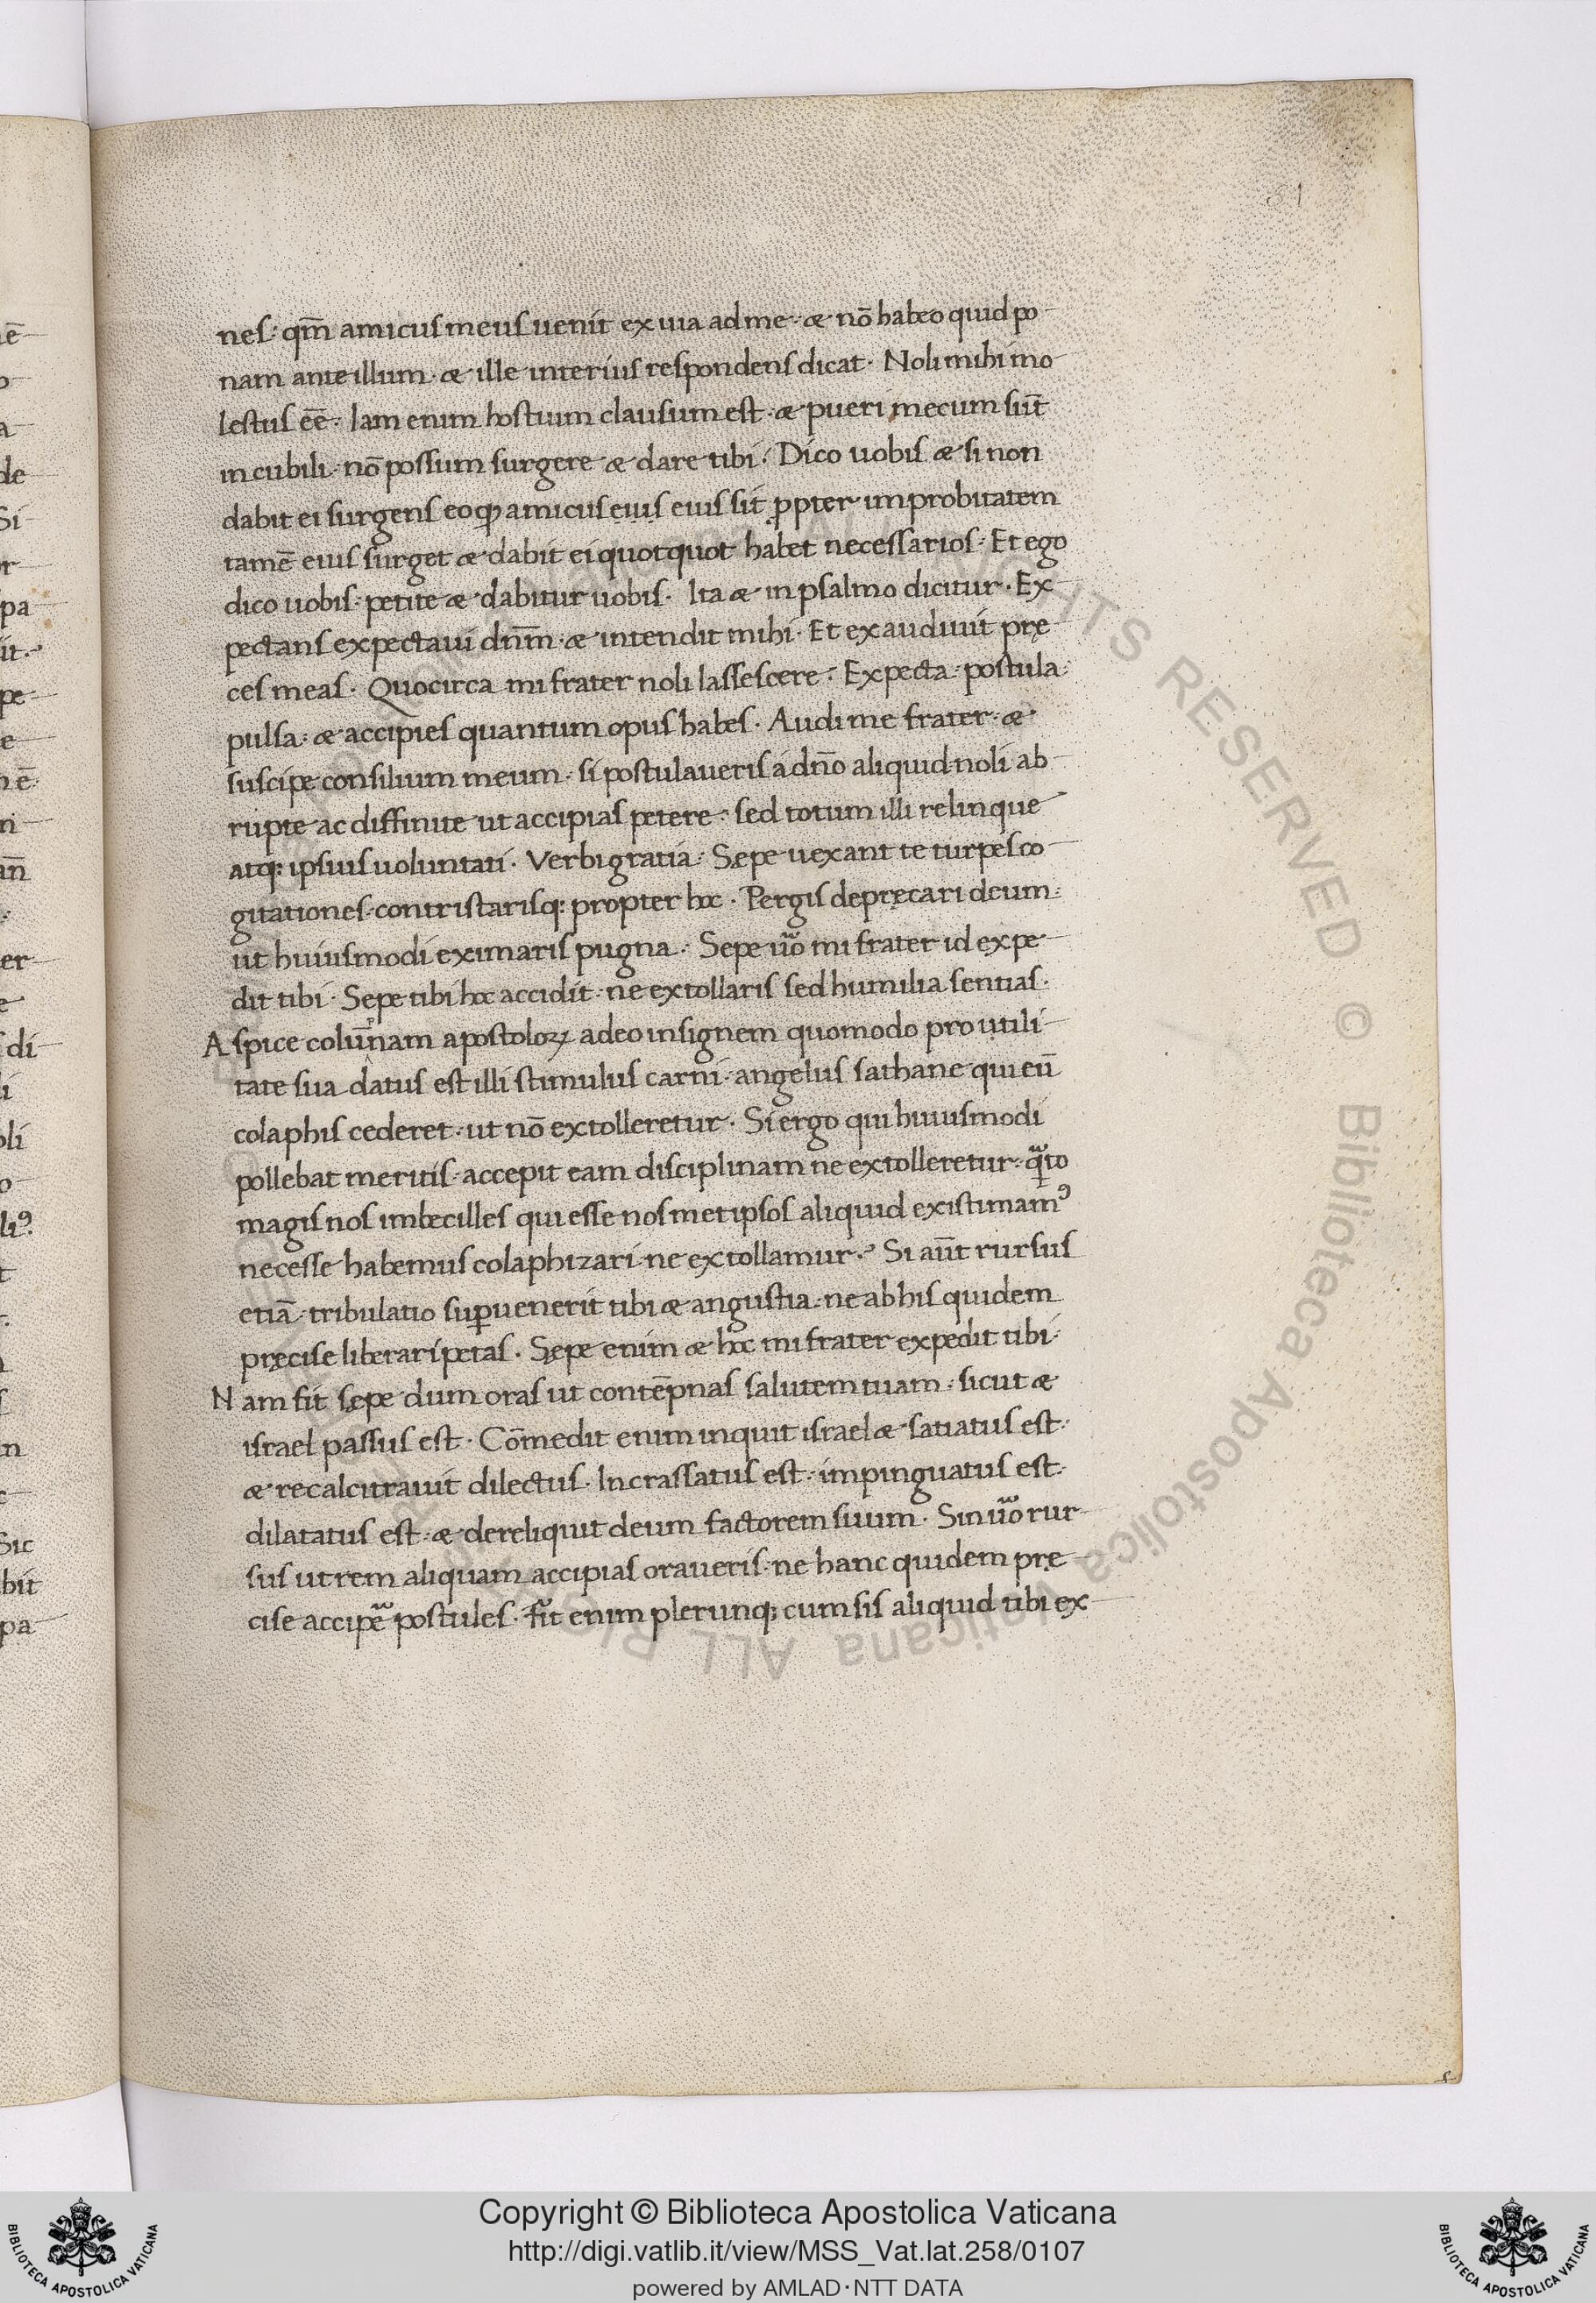 61
nes: qm̄ amicus meus uenit ex uia ad me: & nō habeo quid po
nam ante illum. & ille interius respondens dicat. Noli mihi mo
lestus eē̄. Iam enim hostium clausum est: & pueri mecum sūt
in cubili. nō possum surgere & dare tibi. Dico uobis & si non
dabit ei surgens eo qꝫ amicus eius eius sit ꝓpter improbitatem
tamē eius surget & dabit ei quotquot habet necessarios. Et ego
dico uobis. petite & dabitur uobis. Ita & in psalmo dicitur. Ex
pectans expectaui dnm̄. & intendit mihi. Et exaudiuit prę
ces meas. Quocirca mi frater noli lassescere. Expecta. postula.
pulsa. & accipies quantum opus habes. Audi me frater. &
suscipe consilium meum. si postulaueris á dnō aliquid noli ab
rupte ac diffinite ut accipias petere. sed totum illi relinque
atq; ipsius uoluntati. Verbi gratia. Sępe uexant te turpes co
gitationes. contristarisq; propter hoc. Pergis depręcari deum.
ut huiusmodi eximaris pugna. Sepe uō mi frater id expe
dit tibi. Sepe tibi hoc accidit. ne extollaris sed humilia sentias.
Aspice colum̄nam apostoloꝝ adeo insignem quomodo pro utili
tate sua datus est illi stimulus carni. angelus sathane qui eū
colaphis cederet. ut nō extolleretur. Si ergo qui huiusmodi
pollebat meritis. accepit eam disciplinam ne extolleretur. qͣto
magis nos imbecilles qui esse nosmet ipsos aliquid existimamꝰ
necesse habemus colaphizari. ne extollamur. Si aūt rursus
etiā tribulatio suꝑuenerit tibi & angustia. ne ab his quidem
pręcise liberari petas. Sępe enim & hoc mi frater expedit tibi.
Nam fit sępe dum oras ut contēpnas salutem tuam. sicut &
israel passus est. Cōmedit enim inquit israel & satiatus est.
& recalcitrauit dilectus. Incrassatus est. impinguatus est.
dilatatus est. & dereliquit deum factorem suum. Sin uō rur
sus ut rem aliquam accipias oraueris. ne hanc quidem prę
cise accipē postules. fit enim plerunq; cum sis aliquid tibi ex
Copyright © Biblioteca Apostolica Vaticana
http://digi.vatlib.it/view/MSS_Vat.lat.258/0107
powered by AMLAD·NTT DATA